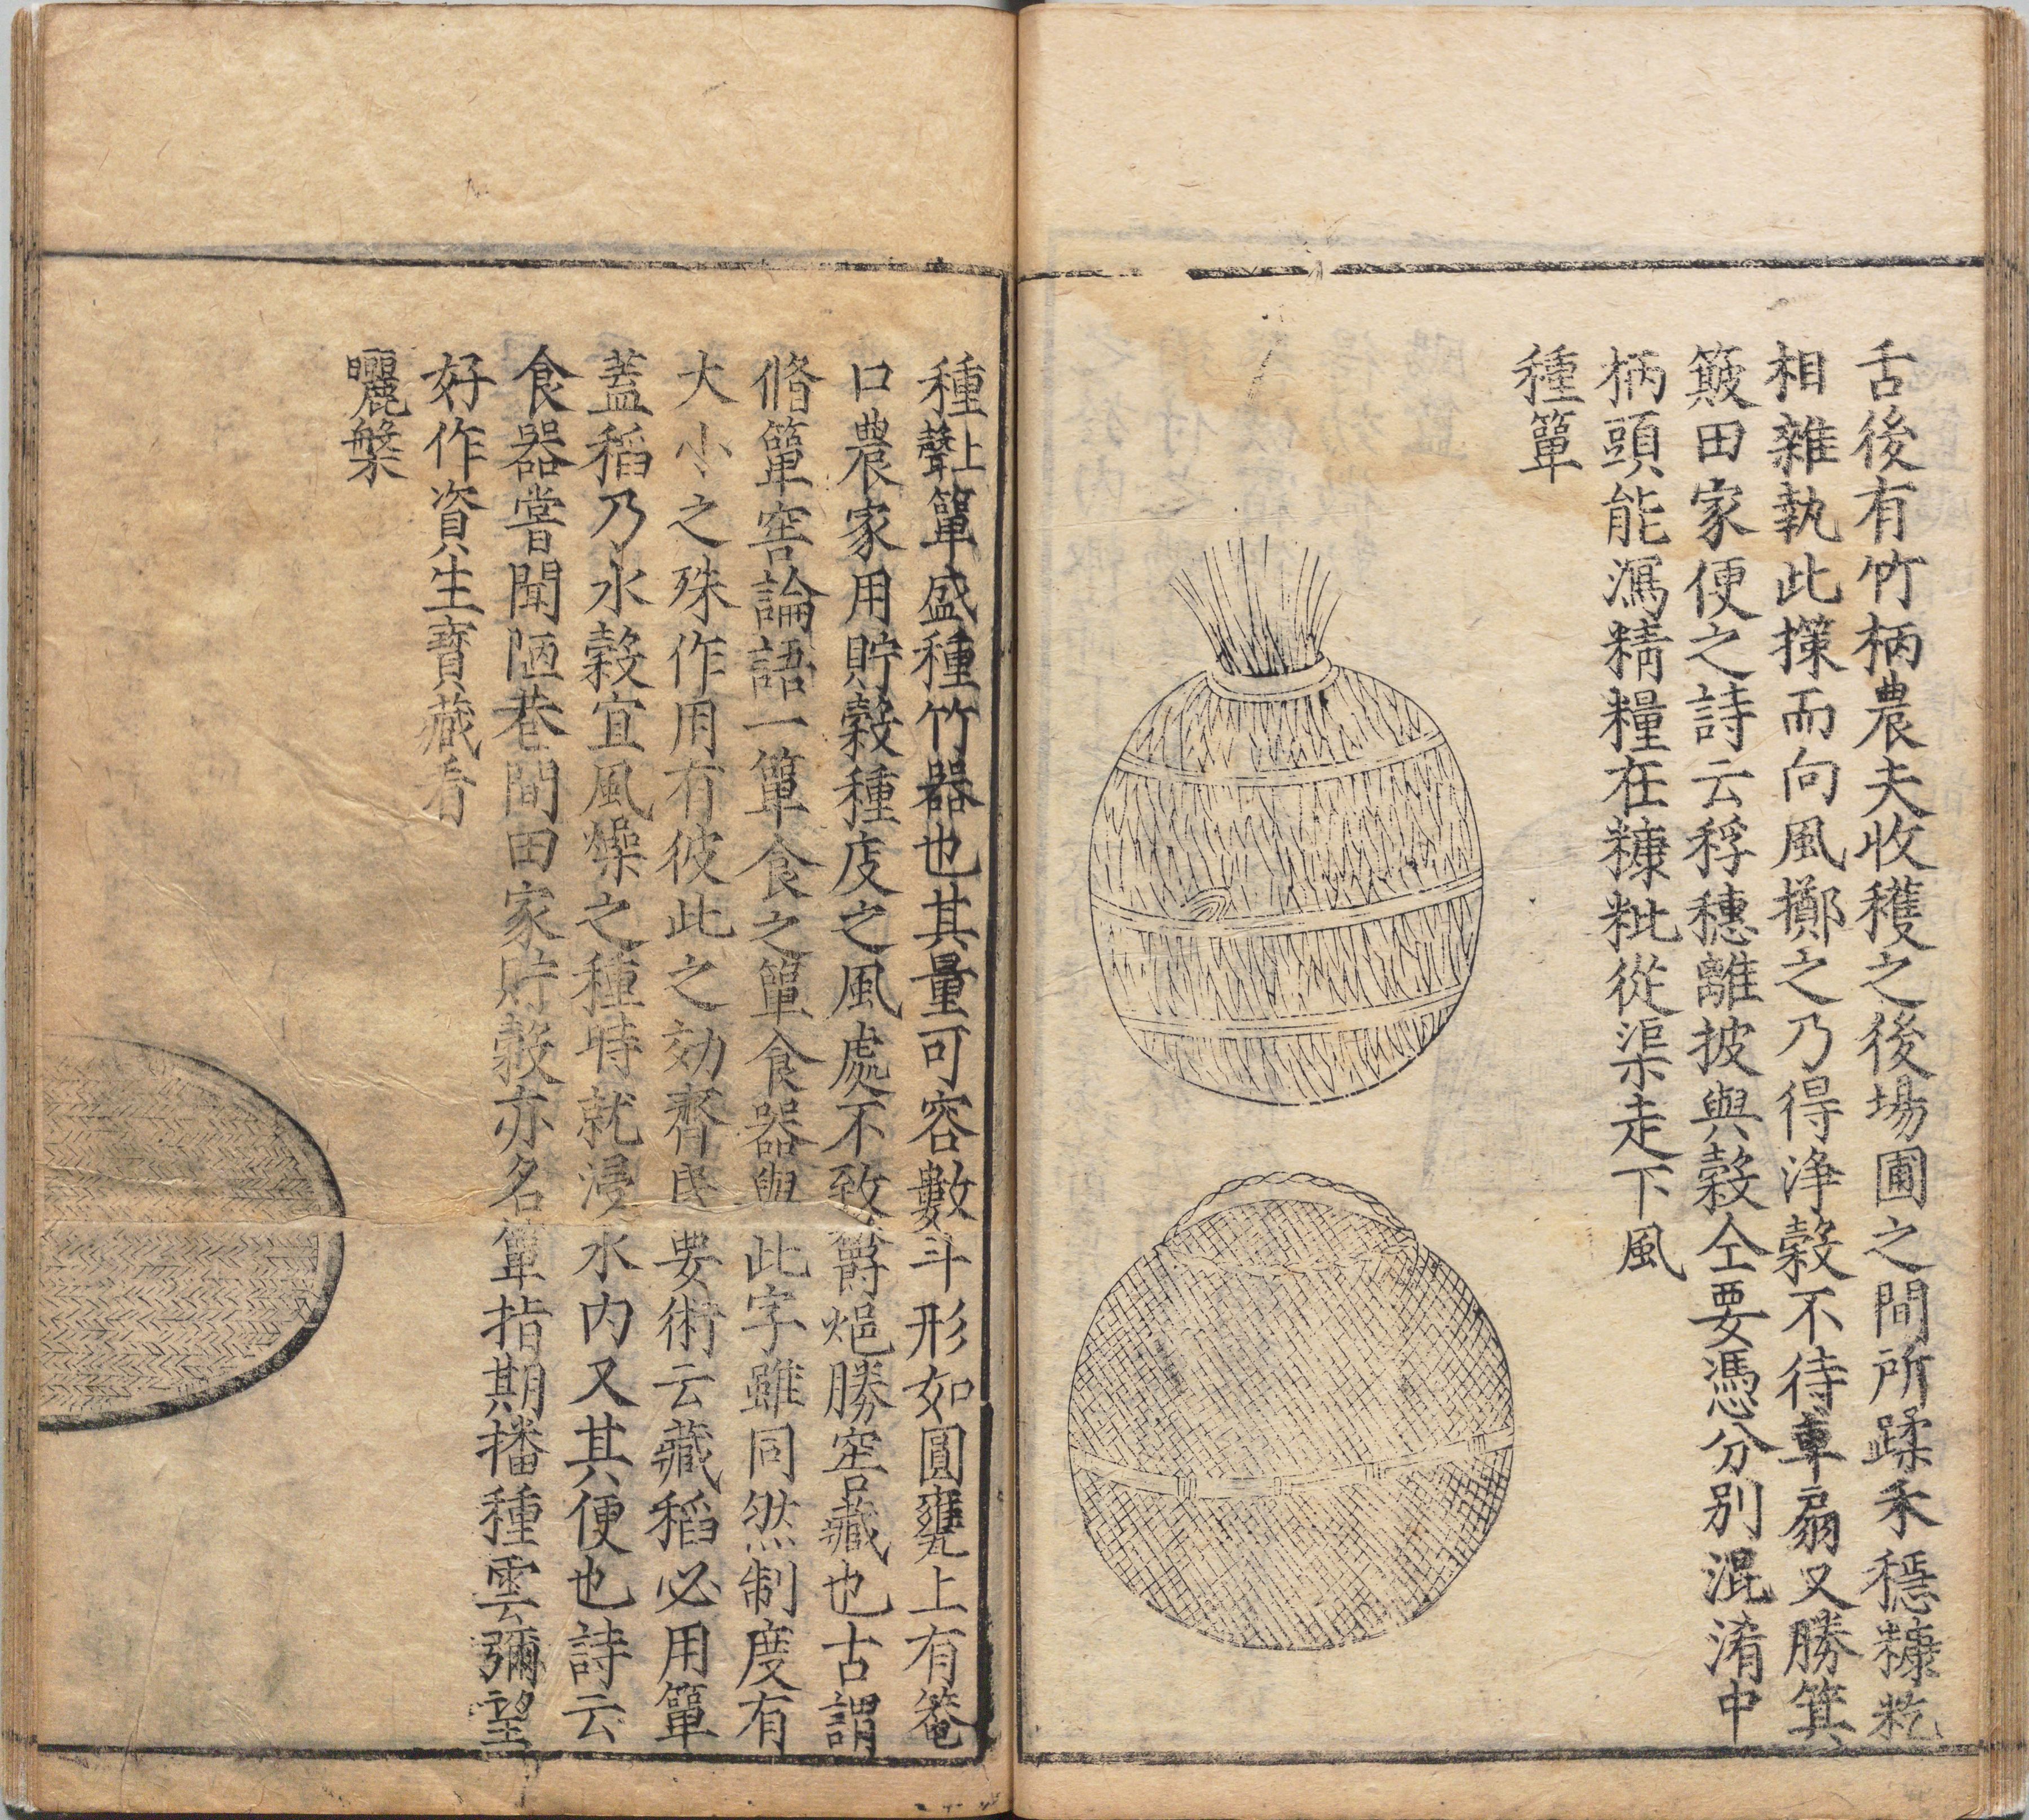 舌後有竹柄農夫收穫之後場圃之間所蹂禾穩糠籺
相雜執此㩢而向風擲之乃得淨穀不待車扇又勝箕
簸田家便之詩云稃穗離披與穀仝要憑分別混淆中
柄頭能瀉精糧在糠粃從渠走下風
種簞
種上聲簞盛種竹器也其量可容數斗形如圓甕上有菴
口農家用貯穀種庋之風處不致欎浥勝窖藏也古謂
脩簞窖論語一簞食之簞食器與此字雖同然制度有
大小之殊作用有彼此之効齊民要術云藏稻必用簞
蓋稻乃水穀宜風燥之種時就浸水内又其便也詩云
食器嘗聞陋巷間田家貯穀亦名簞指期播種雲彌望
好作資生寶藏看
曬槃